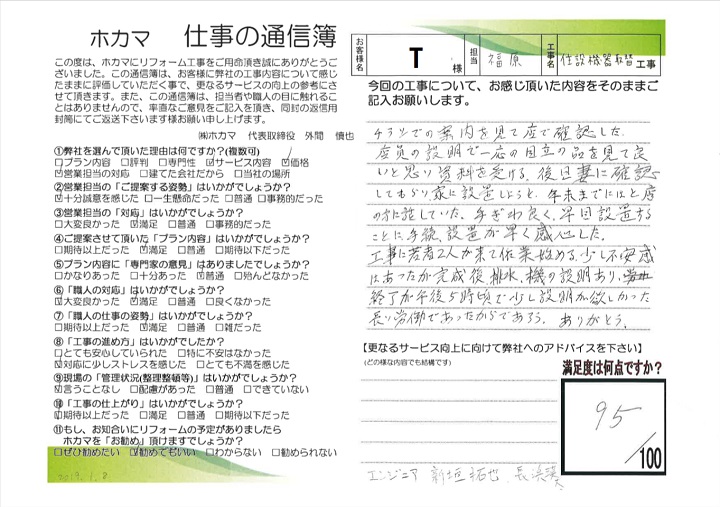 ホカマ　仕事の通信簿
この度は、ホカマにリフォーム工事をご用命頂き誠にありがとうご
ざいました。この通信簿は、お客様に弊社の工事内容について感じ
たままに評価していただく事で、更なるサービスの向上の参考にさ
せて頂きます。また、この通信簿は、担当者や職人の目に触れること
はありませんので、率直なご意見をご記入を頂き、同封の返信用
封筒にてご返送下さいます様お願い申し上げます。
㈱ホカマ　代表取締役　外間　慎也
①弊社を選んで頂いた理由は何ですか?(複数可)
□プラン内容　□評判　□専門性　☑サービス内容　☑価格
☑営業担当の対応　□建てた会社だから　□当社の場所
②営業担当の「ご提案する姿勢」はいかがでしょうか?
☑十分誠意を感じた　□一生懸命だった　□普通　□事務的だった
③営業担当の「対応」はいかがでしょうか?
□大変良かった　☑満足　□普通　□事務的だった
④ご提案させて頂いた「プラン内容」はいかがでしょうか?
□期待以上だった　☑満足　□普通　□期待以下だった
⑤プラン内容に「専門家の意見」はありましたでしょうか?
□かなりあった　□十分あった　☑普通　□殆んどなかった
⑥「職人の対応」はいかがでしょうか?
☑大変良かった　☑満足　□普通　□良くなかった
⑦「職人の仕事の姿勢」はいかがでしょうか?
□期待以上だった　☑満足　□普通　□雑だった
⑧「工事の進め方」はいかがでしたか?
□とても安心していられた　□特に不安はなかった
☑対応に少しストレスを感じた　□とても不満を感じた
⑨現場の「管理状況(整理整頓等)」はいかがでしょうか?
☑言うことなし　□配慮があった　□普通　□できていない
⑩「工事の仕上がり」はいかがでしょうか?
☑期待以上だった　□満足　□普通　□期待以下だった
⑪もし、お知合いにリフォームの予定がありましたら
ホカマを「お勧め」頂けますでしょうか?
□ぜひ勧めたい　☑勧めてもいい　□わからない　□勧められない
お客様名　T　様　担当　福原　工事名　住設機器取替工事
今回の工事について、お感じ頂いた内容をそのままご
記入お願いします。
チラシでの案内を見て店で確認した。
店員の説明で一応の目立の品を見て良
いと思い資料を受ける。後日妻に確認
してもらい、家に設置しようと、年末までにはと店
の方に話していた。手ぎわ良く、早目設置する
ことに手続、設置が早く感心した。
工事に若者2人が来て作業始める、少し不安感
はあったが完成後、排水、機の説明あり、
終了が午後5時頃で少し説明が欲しかった
長い労働であったからであろう。ありがとう。
【更なるサービス向上に向けて弊社へのアドバイスを下さい】
(どの様な内容でも結構です)
満足度は何点ですか?
95
/100
エンジニア　新垣拓也、長浜